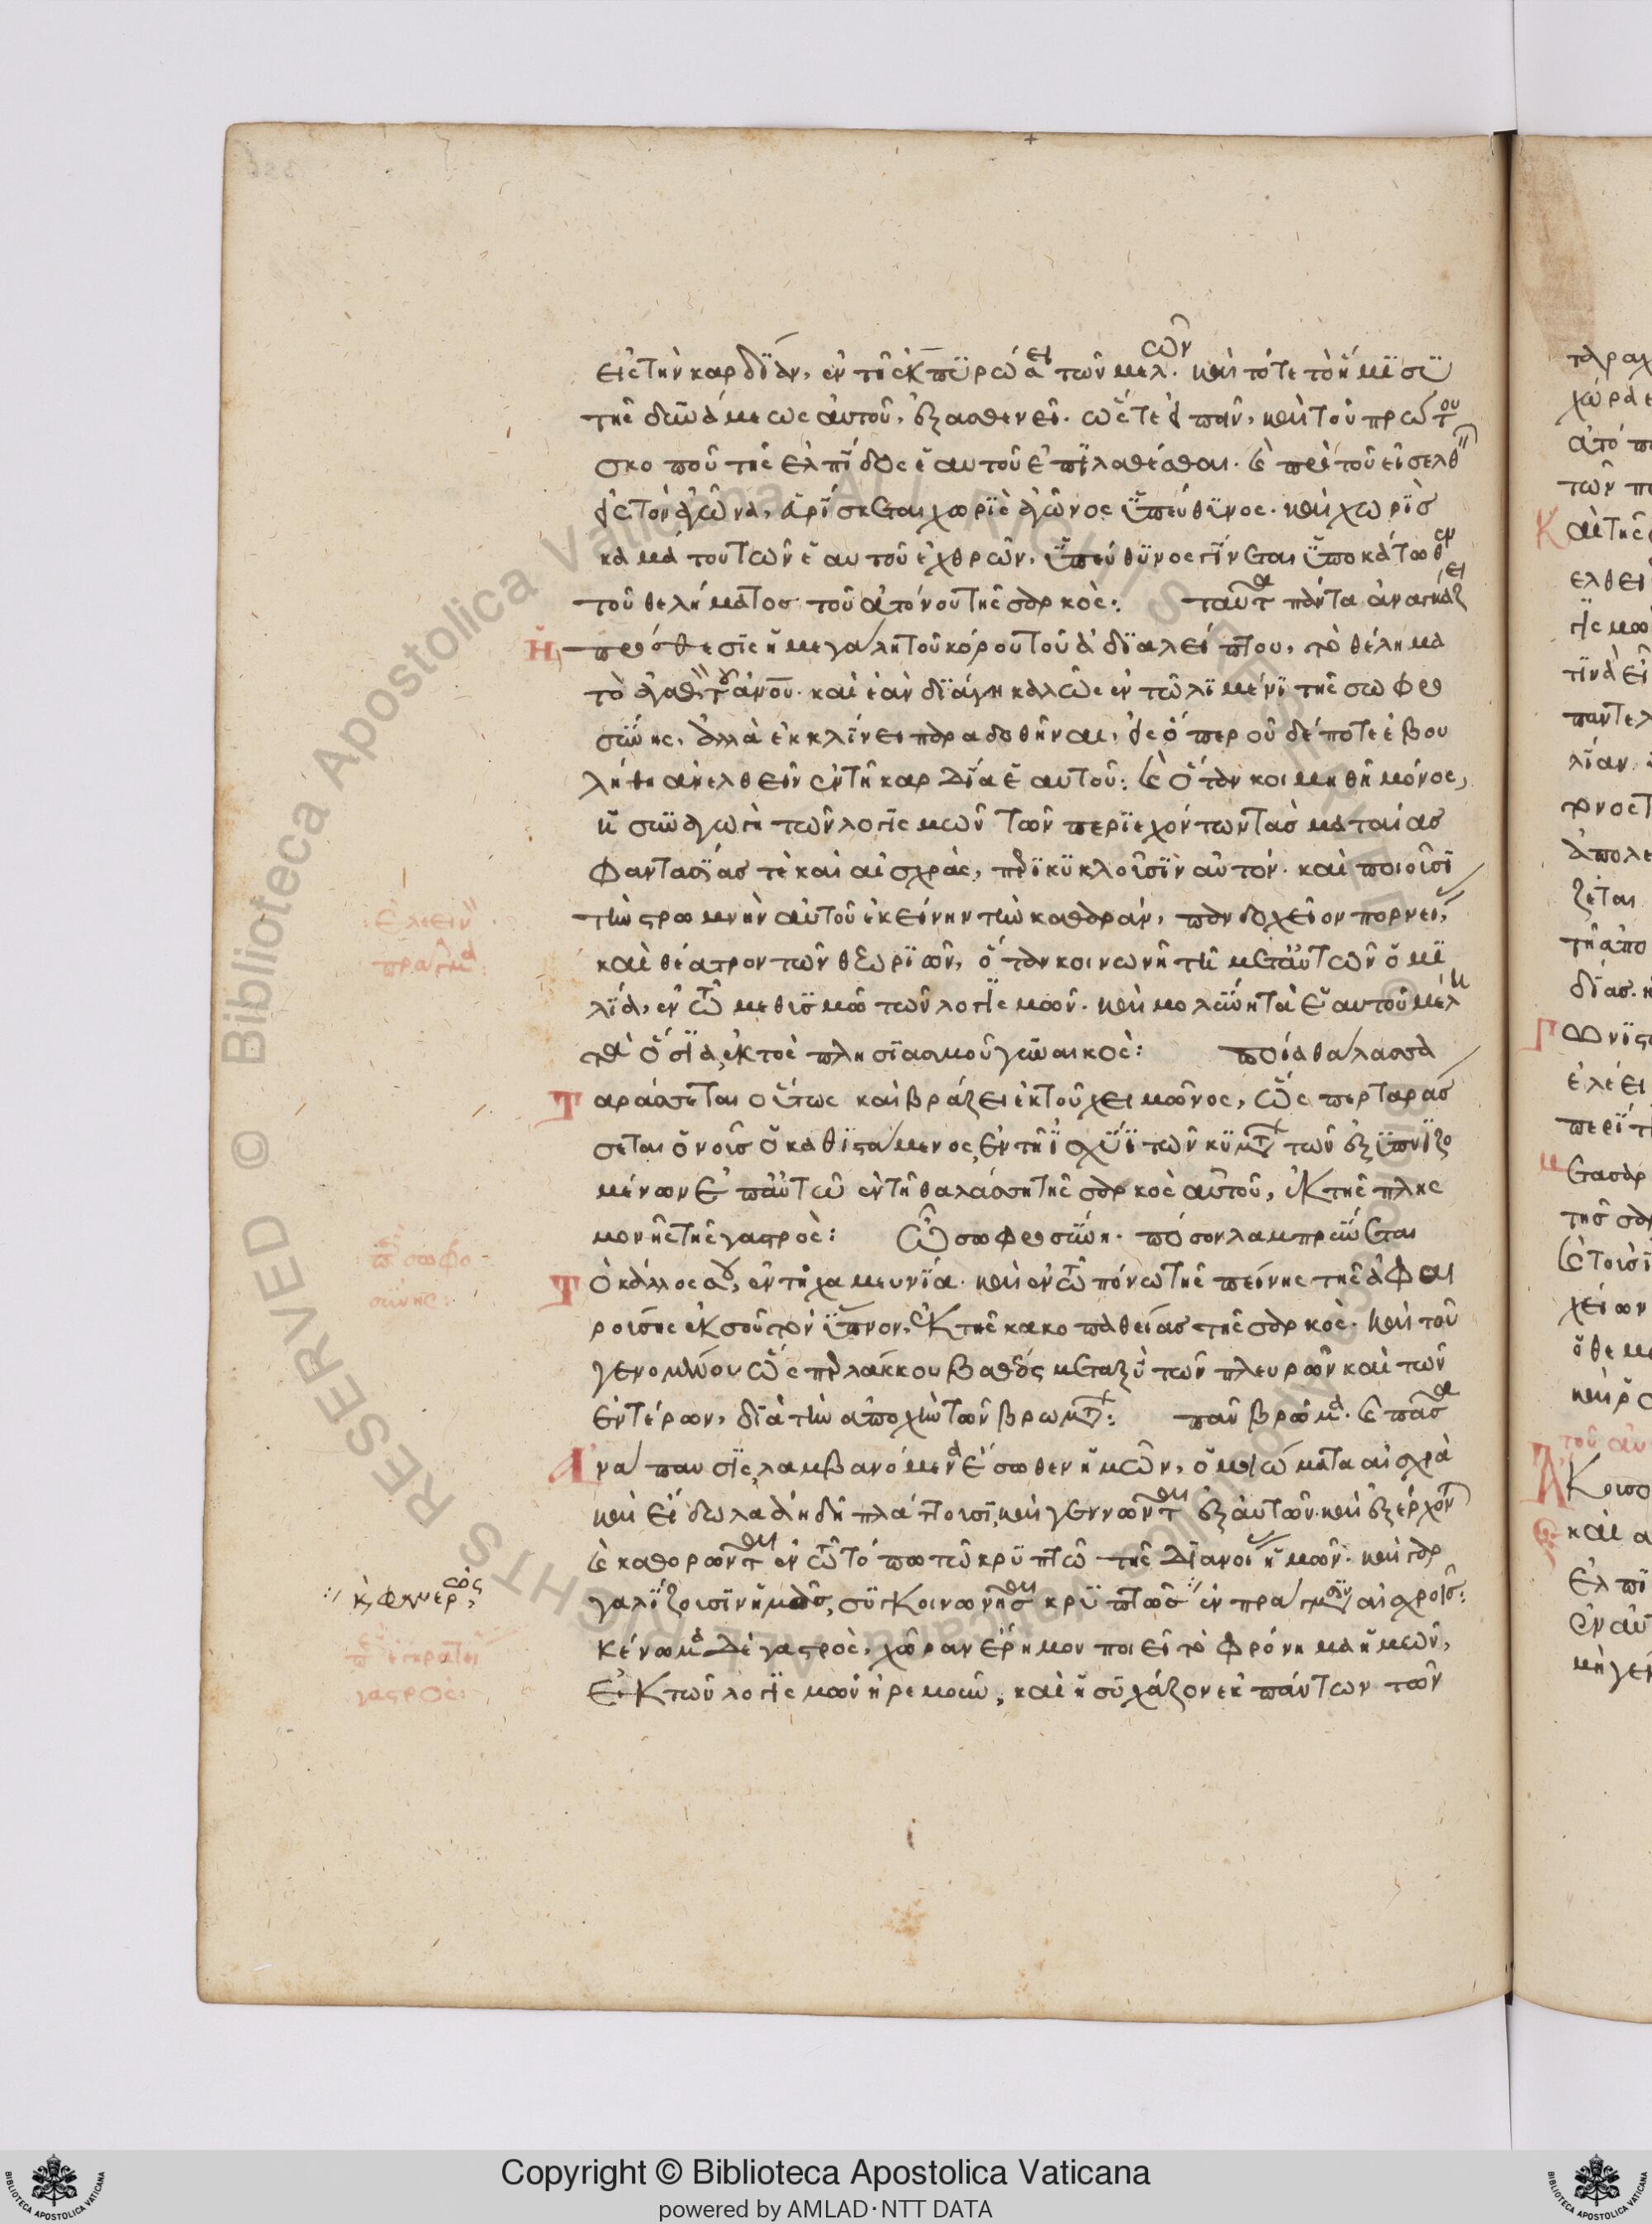 εἰς τὴν καρδίαν, ἐν τῇ ἐκπυρώσει τῶν μελῶν. καὶ τότε τὸ ἥμισυ
τῆς δυνάμεως αὐτοῦ, ἐξασθενεῖ. ὥστε εἰπεῖν, καὶ τοῦ πρώτου
σκοποῦ τῆς ἐλπίδος ἑαυτοῦ ἐπιλαθέσθαι. καὶ πρὸ τοῦ εἰσελθεῖν
εἰς τὸν ἀγῶνα, εὑρίσκεται χωρὶς ἀγῶνος ὑπεύθυνος. καὶ χωρὶς
καμάτου τῶν ἑαυτοῦ ἐχθρῶν, ὑπεύθυνος γίνεται ὑποκάτωθεν
τοῦ θελήματος τοῦ ἀτόνου τῆς σαρκός: ταῦτα πάντα ἀναγκάζει
Ἡ πρόθεσις ἡ μεγάλη τοῦ κόρου τοῦ ἀδιαλείπτου, τὸ θέλημα
τὸ ἀγαθὸν τοῦ ἀνου. καὶ ἐὰν διάγῃ καλῶς ἐν τῷ λιμένι τῆς σωφρο
σύνης, ἀλλὰ ἐκκλίνει παραδοθῆναι, εἰς ὅπερ οὐδέποτε ἐβου
λήθη ἀνελθεῖν ἐν τῇ καρδίᾳ ἑαυτοῦ: καὶ ὅταν κοιμηθῇ μόνος,
ἡ συναγωγὴ τῶν λογισμῶν τῶν περιεχόντων τὰς ματαίας
φαντασίας τε καὶ αἰσχρὰς, περικυκλοῦσιν αὐτόν. καὶ ποιοῦσι
τὴν στρωμνὴν αὐτοῦ ἐκείνην τὴν καθαράν, πανδοχεῖον πορνείας,
καὶ θέατρον τῶν θεωριῶν, ὅταν κοινωνῇ τῇ μετ' αὐτῶν ὁμι
λίᾳ, ἐν τῷ μεθυσμῷ τῶν λογισμῶν. καὶ μολύνῃ τὰ ἑαυτοῦ μέλη
τὰ ὅσια, ἐκτὸς πλησιασμοῦ γυναικός: ποία θάλασσα
Ταράσσεται οὕτως καὶ βράζει ἐκ τοῦ χειμῶνος, ὥσπερ ταράσ
σεται ὁ νοῦς ὁ καθιστάμενος, ἐν τῇ ἰσχύϊ τῶν κυμάτων τῶν ἐξυπνιζο
μένων ἐπ' αὐτῷ ἐν τῇ θαλάσσῃ τῆς σαρκὸς αὐτοῦ, ἐκ τῆς πλησ
μονῆς τῆς γαστρός: Ὦ σωφροσύνη. πόσον λαμπρύνεται
Τὸ κάλλος σου, ἐν τῇ χαμευνίᾳ. καὶ ἐν τῷ πόνῳ τῆς πείνης τῆς ἀφαι
ρούσης ἐκ σοῦ τὸν ὕπνον, ἐκ τῆς κακοπαθείας τῆς σαρκός. καὶ τοῦ
γενομένου ὡς περ λάκκου βαθέος μεταξὺ τῶν πλευρῶν καὶ τῶν
ἐντέρων, διὰ τὴν ἀποχὴν τῶν βρωμάτων: πᾶν βρῶμα. καὶ πᾶσα
Ἀνάπαυσις, λαμβανόμενα ἔσωθεν ἡμῶν, ὁμοιώματα αἰσχρὰ
καὶ εἴδωλα ἀηδῆ πλάττουσι, καὶ γεννῶνται ἐξ αὐτῶν. καὶ ἐξέρχονται
καὶ καθορῶνται ἐν τῷ τόπῳ τῷ κρυπτῷ τῆς διανοίας ἡμῶν. καὶ γαρ
γαλίζουσιν ἡμᾶς, συγκοινωνῆσαι κρυπτῶς ἐν πράγμασιν αἰσχροῖς:
κένωμα δὲ γαστρὸς, χώραν ἔρημον ποιεῖ τὸ φρόνημα ἡμῶν,
ἐκ τῶν λογισμῶν ἠρεμοῦν, καὶ ἡσυχάζον ἐκ πάντων τῶν
ἐλεεινὸν
πρᾶγμα:
περὶ σωφρο
σύνης:
:// κ, φανερῶς,
περὶ ἐγκρατείας
γαστρός: